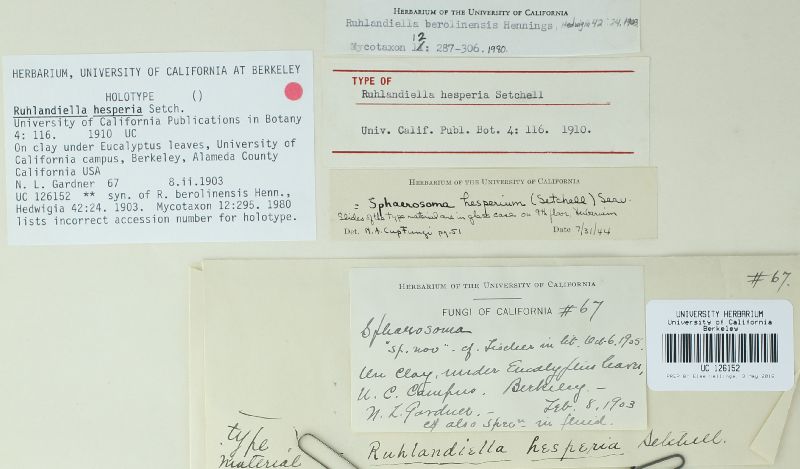 HERBARIUM OF THE UNIVERSITY OF CALIFORNIA
Ruhlandiella berolinensis Hennings, Hedwigia 42: 24, 1903
Mycotaxon 12: 287-306. 1980.
HERBARIUM, UNIVERSITY OF CALIFORNIA AT BERKELEY
HOLOTYPE ()
Ruhlandiella hesperia Setch.
University of California Publications in Botany
4: 116. 1910 UC
On clay under Eucalyptus leaves, University of
California campus, Berkeley, Alameda County
California USA
N. L. Gardner 67 8.ii.1903
UC 126152 ** syn. of R. berolinensis Henn.,
Hedwigia 42:24. 1903. Mycotaxon 12:295. 1980
lists incorrect accession number for holotype.
TYPE OF
Ruhlandiella hesperia Setchell
Univ. Calif. Publ. Bot. 4: 116. 1910.
HERBARIUM OF THE UNIVERSITY OF CALIFORNIA
= Sphaerosoma hesperium (Setchell) Seav.
Slides of the type material are in glass case on 9th floor, Herbarium
Det. N.A. Cup Fungi pg. 51 Date 7/31/44
# 67.
HERBARIUM OF THE UNIVERSITY OF CALIFORNIA
FUNGI OF CALIFORNIA #67
Sphaerosoma
"sp. nov" - cf. Fischer in lit. Oct. 6, 1905
On clay, under Eucalyptus leaves,
U. C. Campus. Berkeley. -
N. L. Gardner. - Feb. 8, 1903
cf also specn in fluid.
UNIVERSITY HERBARIUM
University of California
Berkeley
UC 126152
type
material
Ruhlandiella hesperia Setchell.